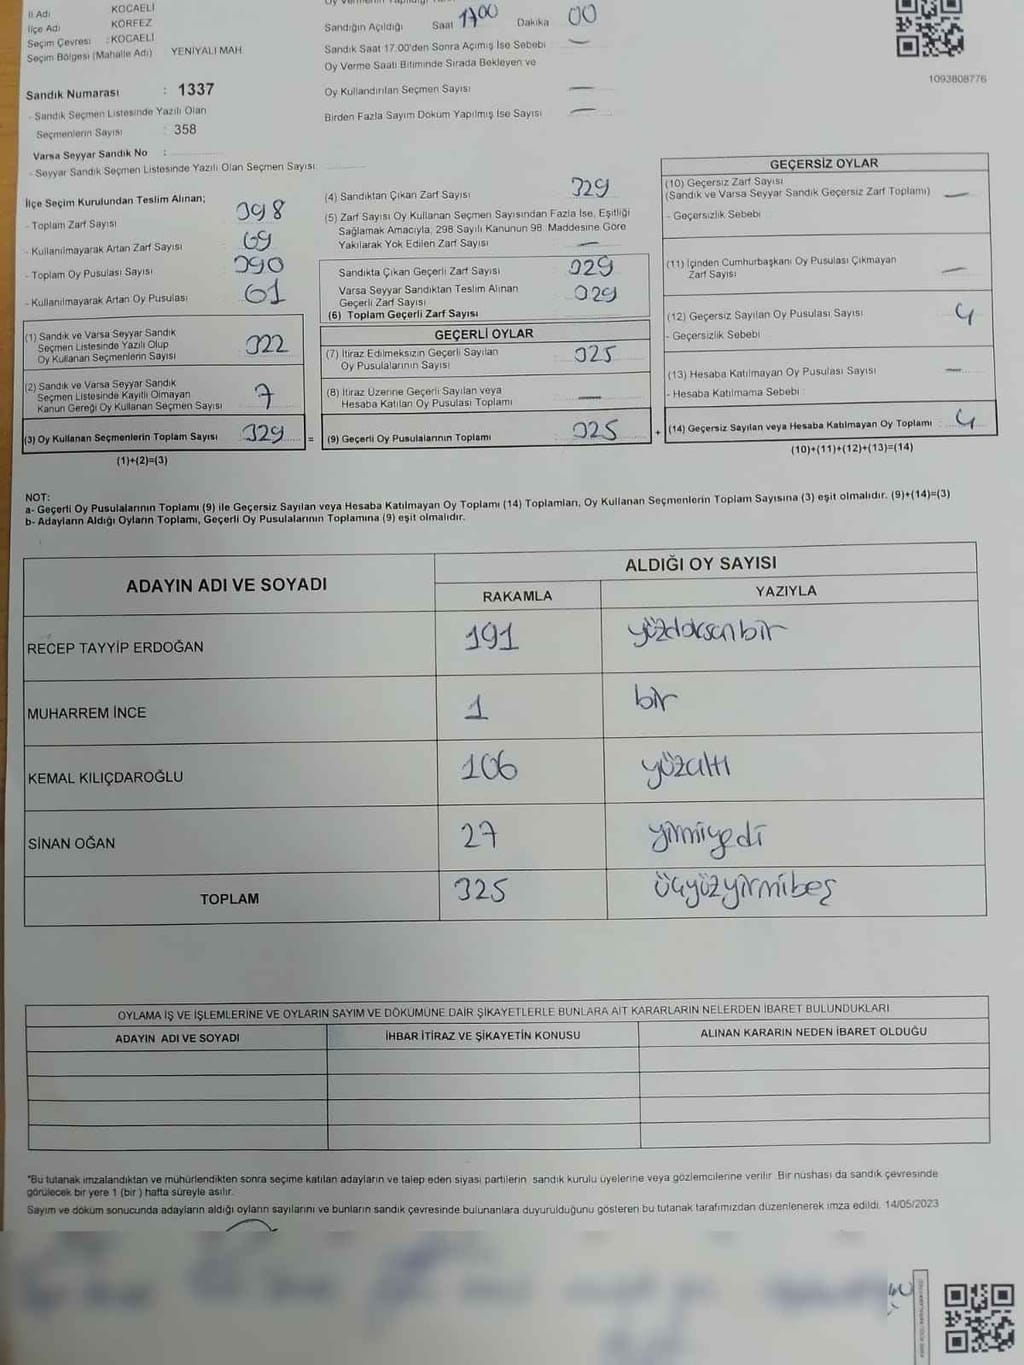 İl Adı KOCAELİ
İlçe Adı KÖRFEZ
Seçim Çevresi : KOCAELİ
Seçim Bölgesi (Mahalle Adı) YENİYALI MAH
Sandık Numarası : 1337
- Sandık Seçmen Listesinde Yazılı Olan
Seçmenlerin Sayısı : 358
Varsa Seyyar Sandık No :
- Seyyar Sandık Seçmen Listesinde Yazılı Olan Seçmen Sayısı:
Sandığın Açıldığı Saat 1700 Dakika 00
Sandık Saat 17.00'den Sonra Açımış İse Sebebi —
Oy Verme Saati Bitiminde Sırada Bekleyen ve
Oy Kullandırılan Seçmen Sayısı —
Birden Fazla Sayım Döküm Yapılmış İse Sayısı —
1093808776
İlçe Seçim Kurulundan Teslim Alınan;
- Toplam Zarf Sayısı 398
- Kullanılmayarak Artan Zarf Sayısı 69
- Toplam Oy Pusulası Sayısı 390
- Kullanılmayarak Artan Oy Pusulası 61
(1) Sandık ve Varsa Seyyar Sandık
Seçmen Listesinde Yazılı Olup
Oy Kullanan Seçmenlerin Sayısı 322
(2) Sandık ve Varsa Seyyar Sandık
Seçmen Listesinde Kayıtlı Olmayan
Kanun Gereği Oy Kullanan Seçmen Sayısı 7
(3) Oy Kullanan Seçmenlerin Toplam Sayısı 329 =
(1)+(2)=(3)
(4) Sandıktan Çıkan Zarf Sayısı 329
(5) Zarf Sayısı Oy Kullanan Seçmen Sayısından Fazla İse, Eşitliği
Sağlamak Amacıyla, 298 Sayılı Kanunun 98. Maddesine Göre
Yakılarak Yok Edilen Zarf Sayısı —
Sandıkta Çıkan Geçerli Zarf Sayısı 329
Varsa Seyyar Sandıktan Teslim Alınan
Geçerli Zarf Sayısı 329
(6) Toplam Geçerli Zarf Sayısı
GEÇERLİ OYLAR
(7) İtiraz Edilmeksizin Geçerli Sayılan
Oy Pusulalarının Sayısı 325
(8) İtiraz Üzerine Geçerli Sayılan veya
Hesaba Katılan Oy Pusulası Toplamı —
(9) Geçerli Oy Pusulalarının Toplamı 325 +
GEÇERSİZ OYLAR
(10) Geçersiz Zarf Sayısı
(Sandık ve Varsa Seyyar Sandık Geçersiz Zarf Toplamı) —
- Geçersizlik Sebebi
(11) İçinden Cumhurbaşkanı Oy Pusulası Çıkmayan
Zarf Sayısı —
(12) Geçersiz Sayılan Oy Pusulası Sayısı 4
- Geçersizlik Sebebi
(13) Hesaba Katılmayan Oy Pusulası Sayısı —
- Hesaba Katılmama Sebebi
(14) Geçersiz Sayılan veya Hesaba Katılmayan Oy Toplamı 4
(10)+(11)+(12)+(13)=(14)
NOT:
a- Geçerli Oy Pusulalarının Toplamı (9) ile Geçersiz Sayılan veya Hesaba Katılmayan Oy Toplamı (14) Toplamları, Oy Kullanan Seçmenlerin Toplam Sayısına (3) eşit olmalıdır. (9)+(14)=(3)
b- Adayların Aldığı Oyların Toplamı, Geçerli Oy Pusulalarının Toplamına (9) eşit olmalıdır.
ADAYIN ADI VE SOYADI ALDIĞI OY SAYISI
RAKAMLA YAZIYLA
RECEP TAYYİP ERDOĞAN 191 yüzdoksanbir
MUHARREM İNCE 1 bir
KEMAL KILIÇDAROĞLU 106 yüzaltı
SİNAN OĞAN 27 yirmiyedi
TOPLAM 325 üçyüzyirmibeş
OYLAMA İŞ VE İŞLEMLERİNE VE OYLARIN SAYIM VE DÖKÜMÜNE DAİR ŞİKAYETLERLE BUNLARA AİT KARARLARIN NELERDEN İBARET BULUNDUKLARI
ADAYIN ADI VE SOYADI İHBAR İTİRAZ VE ŞİKAYETİN KONUSU ALINAN KARARIN NEDEN İBARET OLDUĞU
*Bu tutanak imzalandıktan ve mühürlendikten sonra seçime katılan adayların ve talep eden siyasi partilerin sandık kurulu üyelerine veya gözlemcilerine verilir. Bir nüshası da sandık çevresinde
görülecek bir yere 1 (bir) hafta süreyle asılır.
Sayım ve döküm sonucunda adayların aldığı oyların sayılarını ve bunların sandık çevresinde bulunanlara duyurulduğunu gösteren bu tutanak tarafımızdan düzenlenerek imza edildi. 14/05/2023